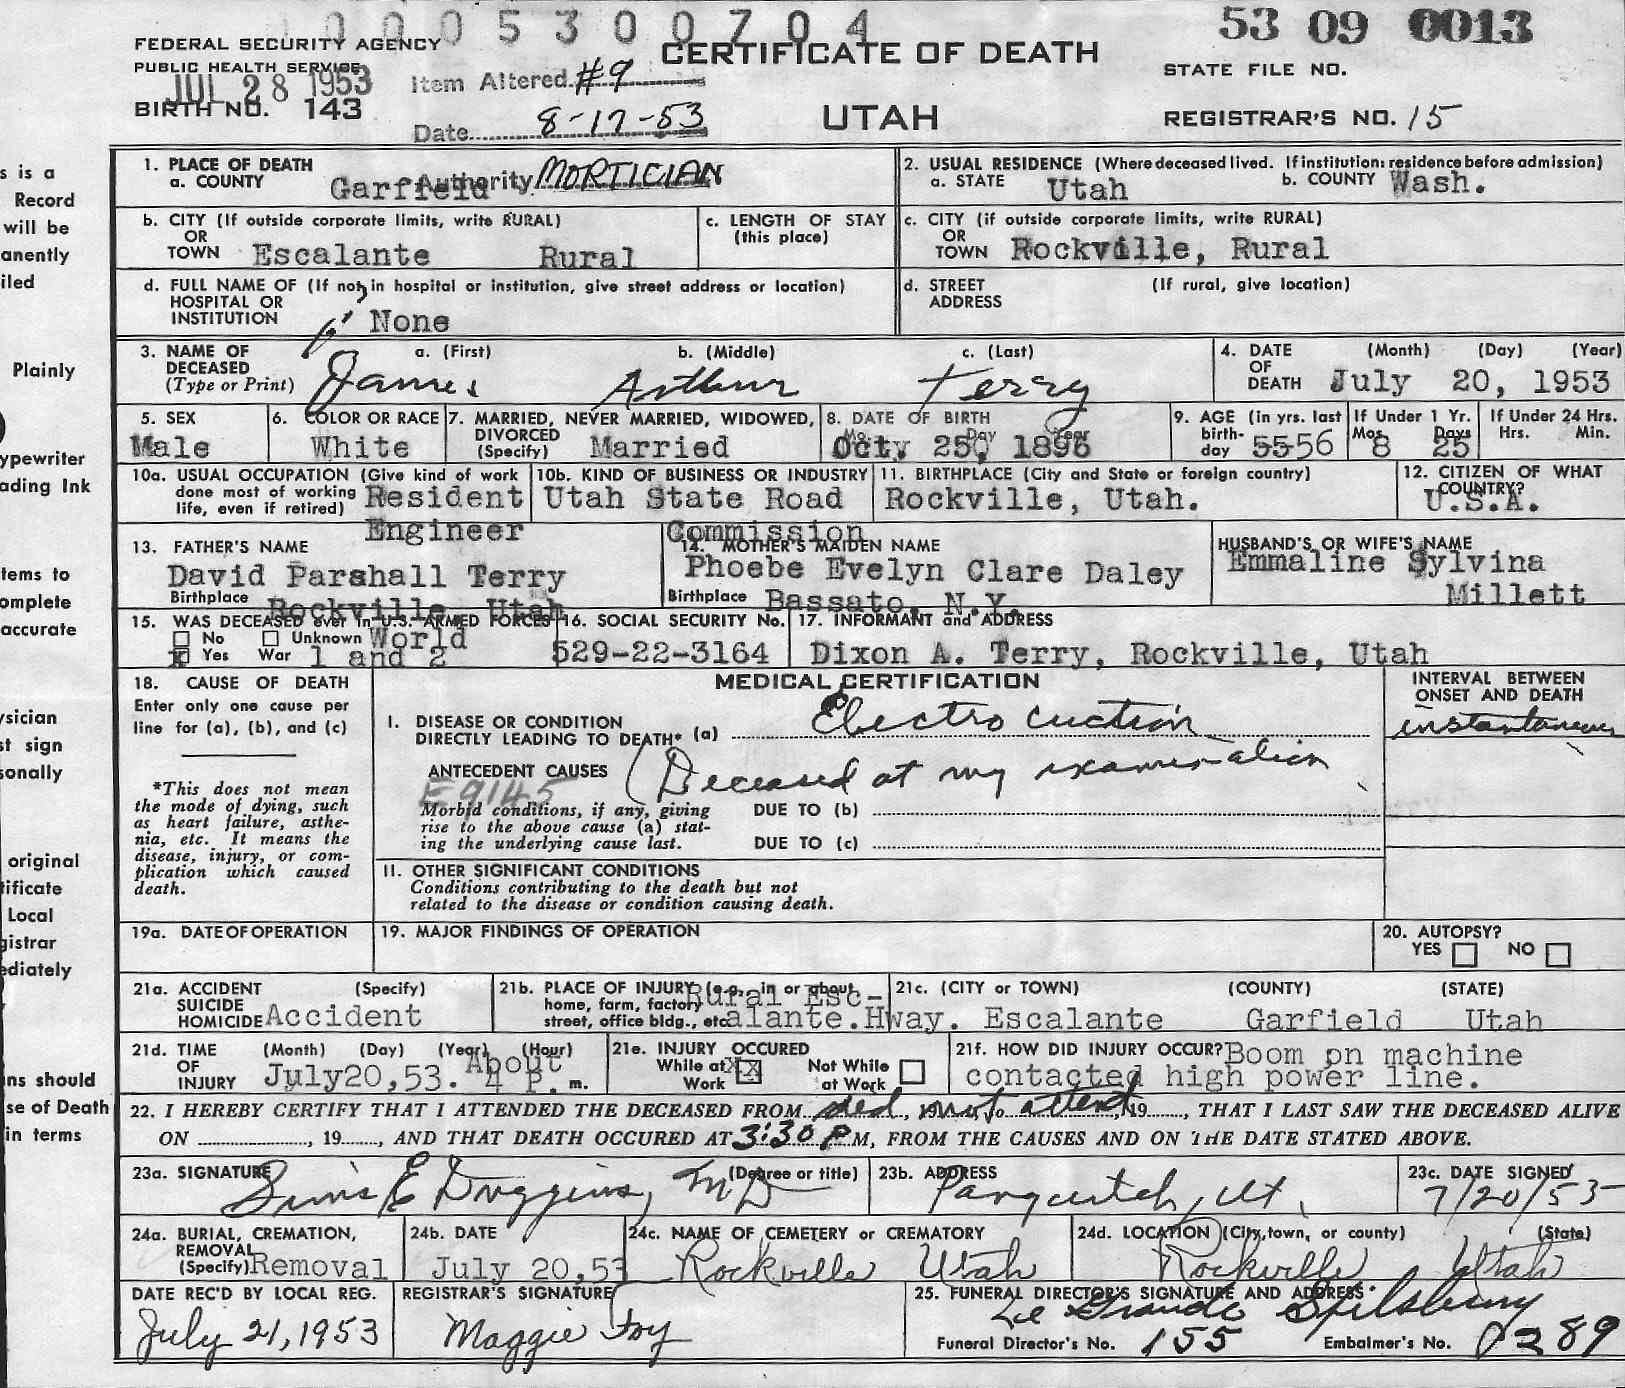 0005300704
53 09 0013
FEDERAL SECURITY AGENCY
PUBLIC HEALTH SERVICE
JUL 28 1953
BIRTH NO. 143
Item Altered #9
Date 8-17-53
Authority MORTICIAN
CERTIFICATE OF DEATH
UTAH
STATE FILE NO.
REGISTRAR'S NO. 15
1. PLACE OF DEATH
a. COUNTY Garfield
2. USUAL RESIDENCE (Where deceased lived. If institution: residence before admission)
a. STATE Utah b. COUNTY Wash.
b. CITY (If outside corporate limits, write RURAL)
OR
TOWN Escalante Rural
c. LENGTH OF STAY
(this place)
c. CITY (if outside corporate limits, write RURAL)
OR
TOWN Rockville, Rural
d. FULL NAME OF (If not in hospital or institution, give street address or location)
HOSPITAL OR
INSTITUTION None
d. STREET (If rural, give location)
ADDRESS
3. NAME OF DECEASED (Type or Print)
a. (First) b. (Middle) c. (Last)
James Arthur Terry
4. DATE OF DEATH (Month) (Day) (Year)
July 20, 1953
5. SEX
Male
6. COLOR OR RACE
White
7. MARRIED, NEVER MARRIED, WIDOWED,
DIVORCED
(Specify) Married
8. DATE OF BIRTH
Mo. Day Year
Oct. 25, 1896
9. AGE (in yrs. last
birth-
day 55 56
If Under 1 Yr.
Mos. Days
8 25
If Under 24 Hrs.
Hrs. Min.
10a. USUAL OCCUPATION (Give kind of work
done most of working
life, even if retired) Resident
Engineer
10b. KIND OF BUSINESS OR INDUSTRY
Utah State Road
Commission
11. BIRTHPLACE (City and State or foreign country)
Rockville, Utah.
12. CITIZEN OF WHAT
COUNTRY?
U.S.A.
13. FATHER'S NAME
David Parshall Terry
Birthplace Rockville, Utah
14. MOTHER'S MAIDEN NAME
Phoebe Evelyn Clare Daley
Birthplace Bassato, N.Y.
HUSBAND'S OR WIFE'S NAME
Emmaline Sylvina
Millett
15. WAS DECEASED ever in U.S. ARMED FORCES
No Unknown World
x Yes War 1 and 2
16. SOCIAL SECURITY No.
529-22-3164
17. INFORMANT and ADDRESS
Dixon A. Terry, Rockville, Utah
18. CAUSE OF DEATH
Enter only one cause per
line for (a), (b), and (c)
*This does not mean
the mode of dying, such
as heart failure, asthe-
nia, etc. It means the
disease, injury, or com-
plication which caused
death.
MEDICAL CERTIFICATION
I. DISEASE OR CONDITION
DIRECTLY LEADING TO DEATH* (a) Electrocuction
(Deceased at my examination
ANTECEDENT CAUSES
E9145
Morbid conditions, if any, giving
rise to the above cause (a) stat-
ing the underlying cause last.
DUE TO (b)
DUE TO (c)
II. OTHER SIGNIFICANT CONDITIONS
Conditions contributing to the death but not
related to the disease or condition causing death.
INTERVAL BETWEEN
ONSET AND DEATH
instantaneous
19a. DATE OF OPERATION
19. MAJOR FINDINGS OF OPERATION
20. AUTOPSY?
YES NO
21a. ACCIDENT (Specify)
SUICIDE
HOMICIDE Accident
21b. PLACE OF INJURY (e.g., in or about
home, farm, factory
street, office bldg., etc.
Rural Esc-
alante.Hway.
21c. (CITY or TOWN) (COUNTY) (STATE)
Escalante Garfield Utah
21d. TIME (Month) (Day) (Year) (Hour)
OF
INJURY July20,53. About
4 P. m.
21e. INJURY OCCURED
While at XX Not While
Work at Work
21f. HOW DID INJURY OCCUR? Boom pn machine
contacted high power line.
22. I HEREBY CERTIFY THAT I ATTENDED THE DECEASED FROM did, 19 not to attend, 19, THAT I LAST SAW THE DECEASED ALIVE
ON , 19 , AND THAT DEATH OCCURED AT 3:30 P M, FROM THE CAUSES AND ON THE DATE STATED ABOVE.
23a. SIGNATURE (Degree or title)
Sims E Duggins, MD
23b. ADDRESS
Panguitch, Ut.
23c. DATE SIGNED
7/20/53
24a. BURIAL, CREMATION,
REMOVAL
(Specify) Removal
24b. DATE
July 20,53
24c. NAME OF CEMETERY or CREMATORY
Rockville Utah
24d. LOCATION (City, town, or county) (State)
Rockville Utah
DATE REC'D BY LOCAL REG.
July 21, 1953
REGISTRAR'S SIGNATURE
Maggie Foy
25. FUNERAL DIRECTOR'S SIGNATURE AND ADDRESS
Le Grande Spilsbury
Funeral Director's No. 155 Embalmer's No. 0289
s is a
Record
will be
anently
iled
Plainly
ypewriter
ading Ink
tems to
omplete
accurate
ysician
st sign
sonally
original
tificate
Local
gistrar
ediately
ns should
se of Death
in terms